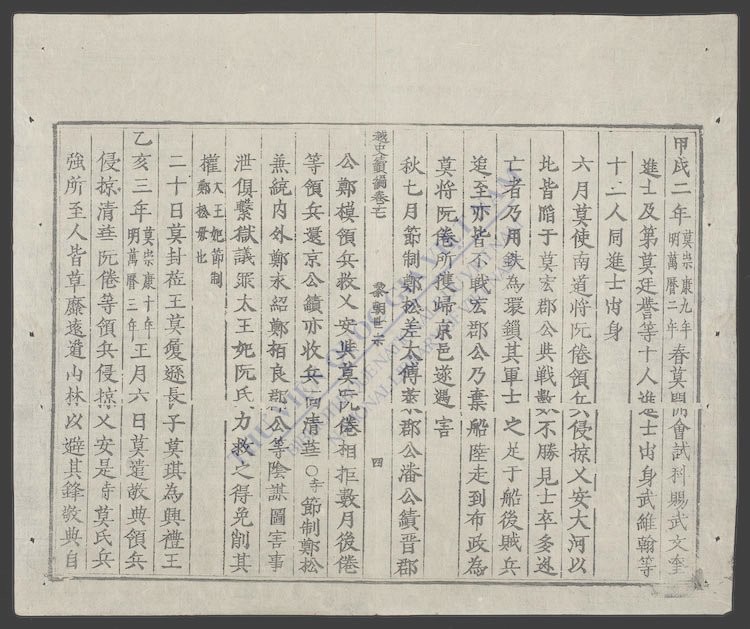 甲戌二年莫崇康九年明萬曆二年春莫開會試科賜武文奎
進士及第莫廷譽等十人進士出身武維翰等
十二人同進士出身
六月莫使南道將阮倦領兵侵掠乂安大河以
北皆陷于莫宏郡公與戰數不勝見士卒多逃
亡者乃用鉄為環鎖其軍士之足于船後賊兵
追至亦皆不戰宏郡公乃棄船陸走到布政為
莫將阮倦所獲歸京邑遂遇害
秋七月節制鄭松差太傅萊郡公潘公績晋郡
越史續編卷之
黎朝世宗
四
公鄭模領兵救乂安與莫阮倦相拒數月後倦
等領兵還京公績亦收兵回清華○時節制鄭松
兼統内外鄭永紹鄭栢良郡公等陰謀圖害事
泄俱繫獄議罪太王妃阮氏力救之得免削其
權太王妃節制鄭松母也
二十日莫封莅王莫瓊遜長子莫琪為興禮王
乙亥三年莫崇康十年明萬曆三年正月六日莫遣敬典領兵
侵掠清華阮倦等領兵侵掠乂安是時莫氏兵
強所至人皆草靡遠遁山林以避其鋒敬典自
THƯ VIỆN QUỐC GIA VIỆT NAM
BIBLIOTHÈQUE NATIONALE DU VIETNAM
NATIONAL LIBRARY OF VIETNAM